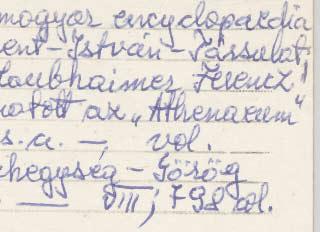 magyar encyclopaedia
ent-István-Társulat,
Laubhaimer Ferencz
atott az „Athenaeum"
s.a. — vol.
chegység – Görög
. — VIII; 798 col.